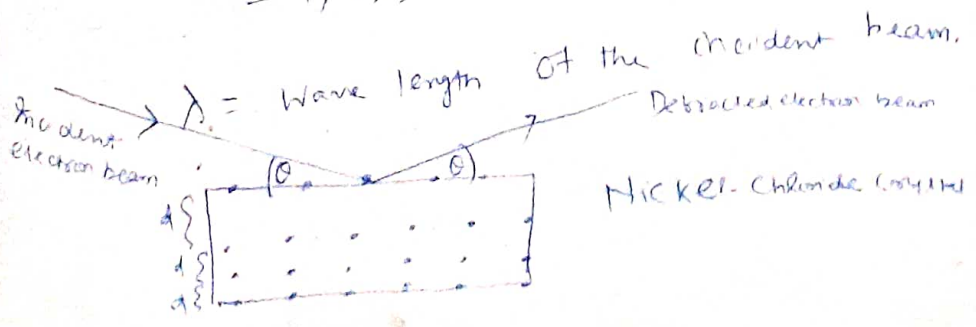 λ = Wave length of the incident beam.
Incident
electron beam
Debracted electron beam
θ
θ
Nickel- Chloride Crystal
d
d
d